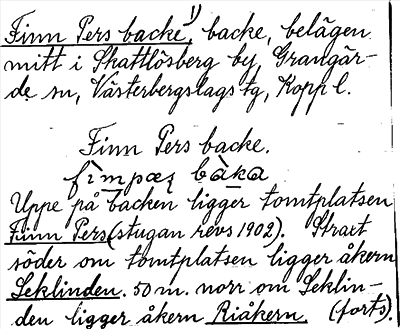 Finn Pers backe, 1) backe, belägen
mitt i Skattlösberg by, Grangär-
de sn, Västerbergslags tg, Kopp l.
Finn Pers backe.
fìmpæʂ bàka
Uppe på backen ligger tomtplatsen
Finn Pers (stugan revs 1902). Strax
söder om tomtplatsen ligger åkern
Seklinden. 50 m. norr om Seklin-
den ligger åkern Riåkern (forts).